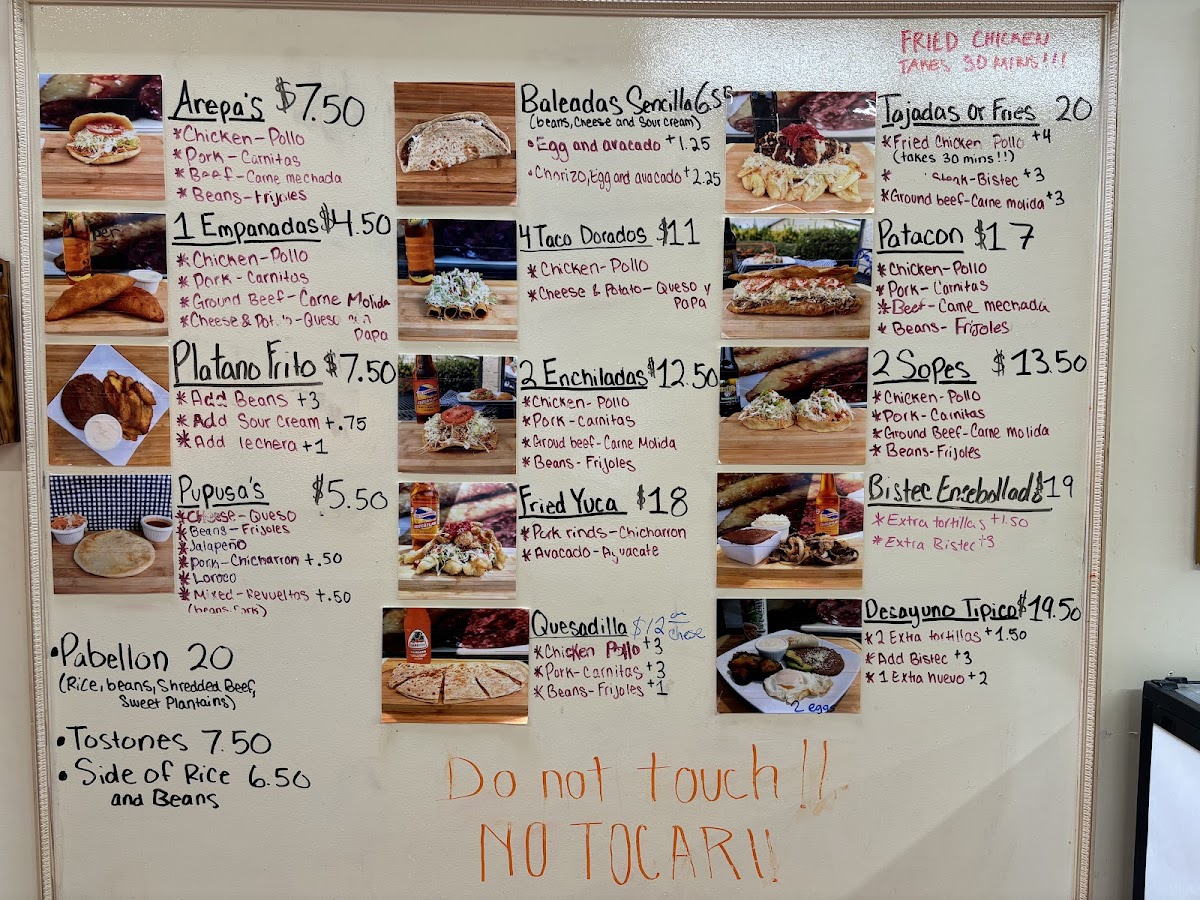 FRIED CHICKEN
TAKES 30 MINS!!!
Arepa's $7.50
*Chicken-Pollo
*Pork-Carnitas
*Beef-Carne mechada
*Beans-Frijoles
1 Empanadas $4.50
*Chicken-Pollo
*Pork-Carnitas
*Ground Beef-Carne Molida
*Cheese & Pot Queso
Papa
Platano Frito $7.50
*Add Beans +3
*Add Sour Cream +.75
*Add lechera +1
Pupusa's $5.50
*Cheese-Queso
*Beans-Frijoles
*Jalapeño
*Pork-Chicharron +.50
*Loroco
*Mixed-Revueltos +.50
(beans, Pork)
•Pabellon 20
(Rice, beans, Shredded Beef,
Sweet Plantains)
•Tostones 7.50
•Side of Rice 6.50
and Beans
Baleadas Sencilla 6.55
(beans, Cheese and Sour cream)
•Egg and avocado +1.25
•Chorizo, Egg and avocado +2.25
4 Taco Dorados $11
*Chicken-Pollo
*Cheese & Potato-Queso y
Papa
2 Enchiladas $12.50
*Chicken-Pollo
*Pork-carnitas
*Groud beef-Carne Molida
*Beans-Frijoles
Fried Yuca $18
*Pork rinds-Chicharron
*Avocado-Aguacate
Quesadilla $12
chese
*Chicken Pollo +3
*Pork-Carnitas +3
*Beans-Frijoles +1
Tajadas or Fries 20
*Fried Chicken Pollo +4
(takes 30 mins!!)
* Steak-Bistec +3
*Ground beef-Carne molida +3
Patacon $17
*Chicken-Pollo
*Pork-Carnitas
*Beef-Carne mechada
*Beans-Frijoles
2 Sopes $13.50
*Chicken-Pollo
*Pork-Carnitas
*Ground Beef-Carne molida
*Beans-Frijoles
Bistec Encebollado $19
*Extra tortillas +1.50
*Extra Bistec +3
Desayuno Tipico $19.50
*2 Extra tortillas +1.50
*Add Bistec +3
*1 Extra huevo +2
2 eggs
Do not touch!!
NO TOCAR!!